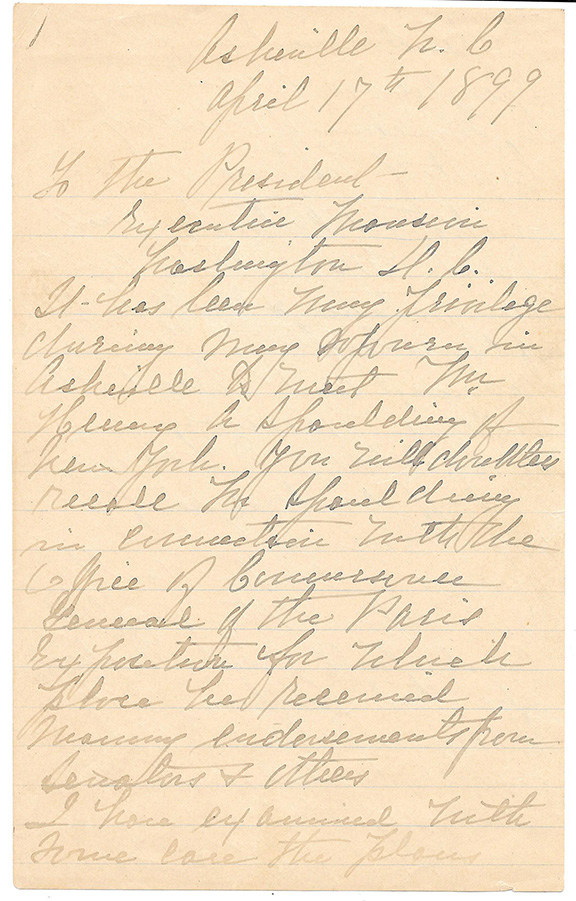 1
Asheville N. C
April 17th 1899
To the President
Executive Mansion
Washington D. C.
It has been my privilege
during my sojourn in
Asheville to meet Mr
Henry A Spaulding of
New York. You will doubtless
recall Mr Spaulding
in connection with the
Office of Commissioner
General of the Paris
Exposition for which
place he received
many endorsements from
Senators & others
I have examined with
some care the plans